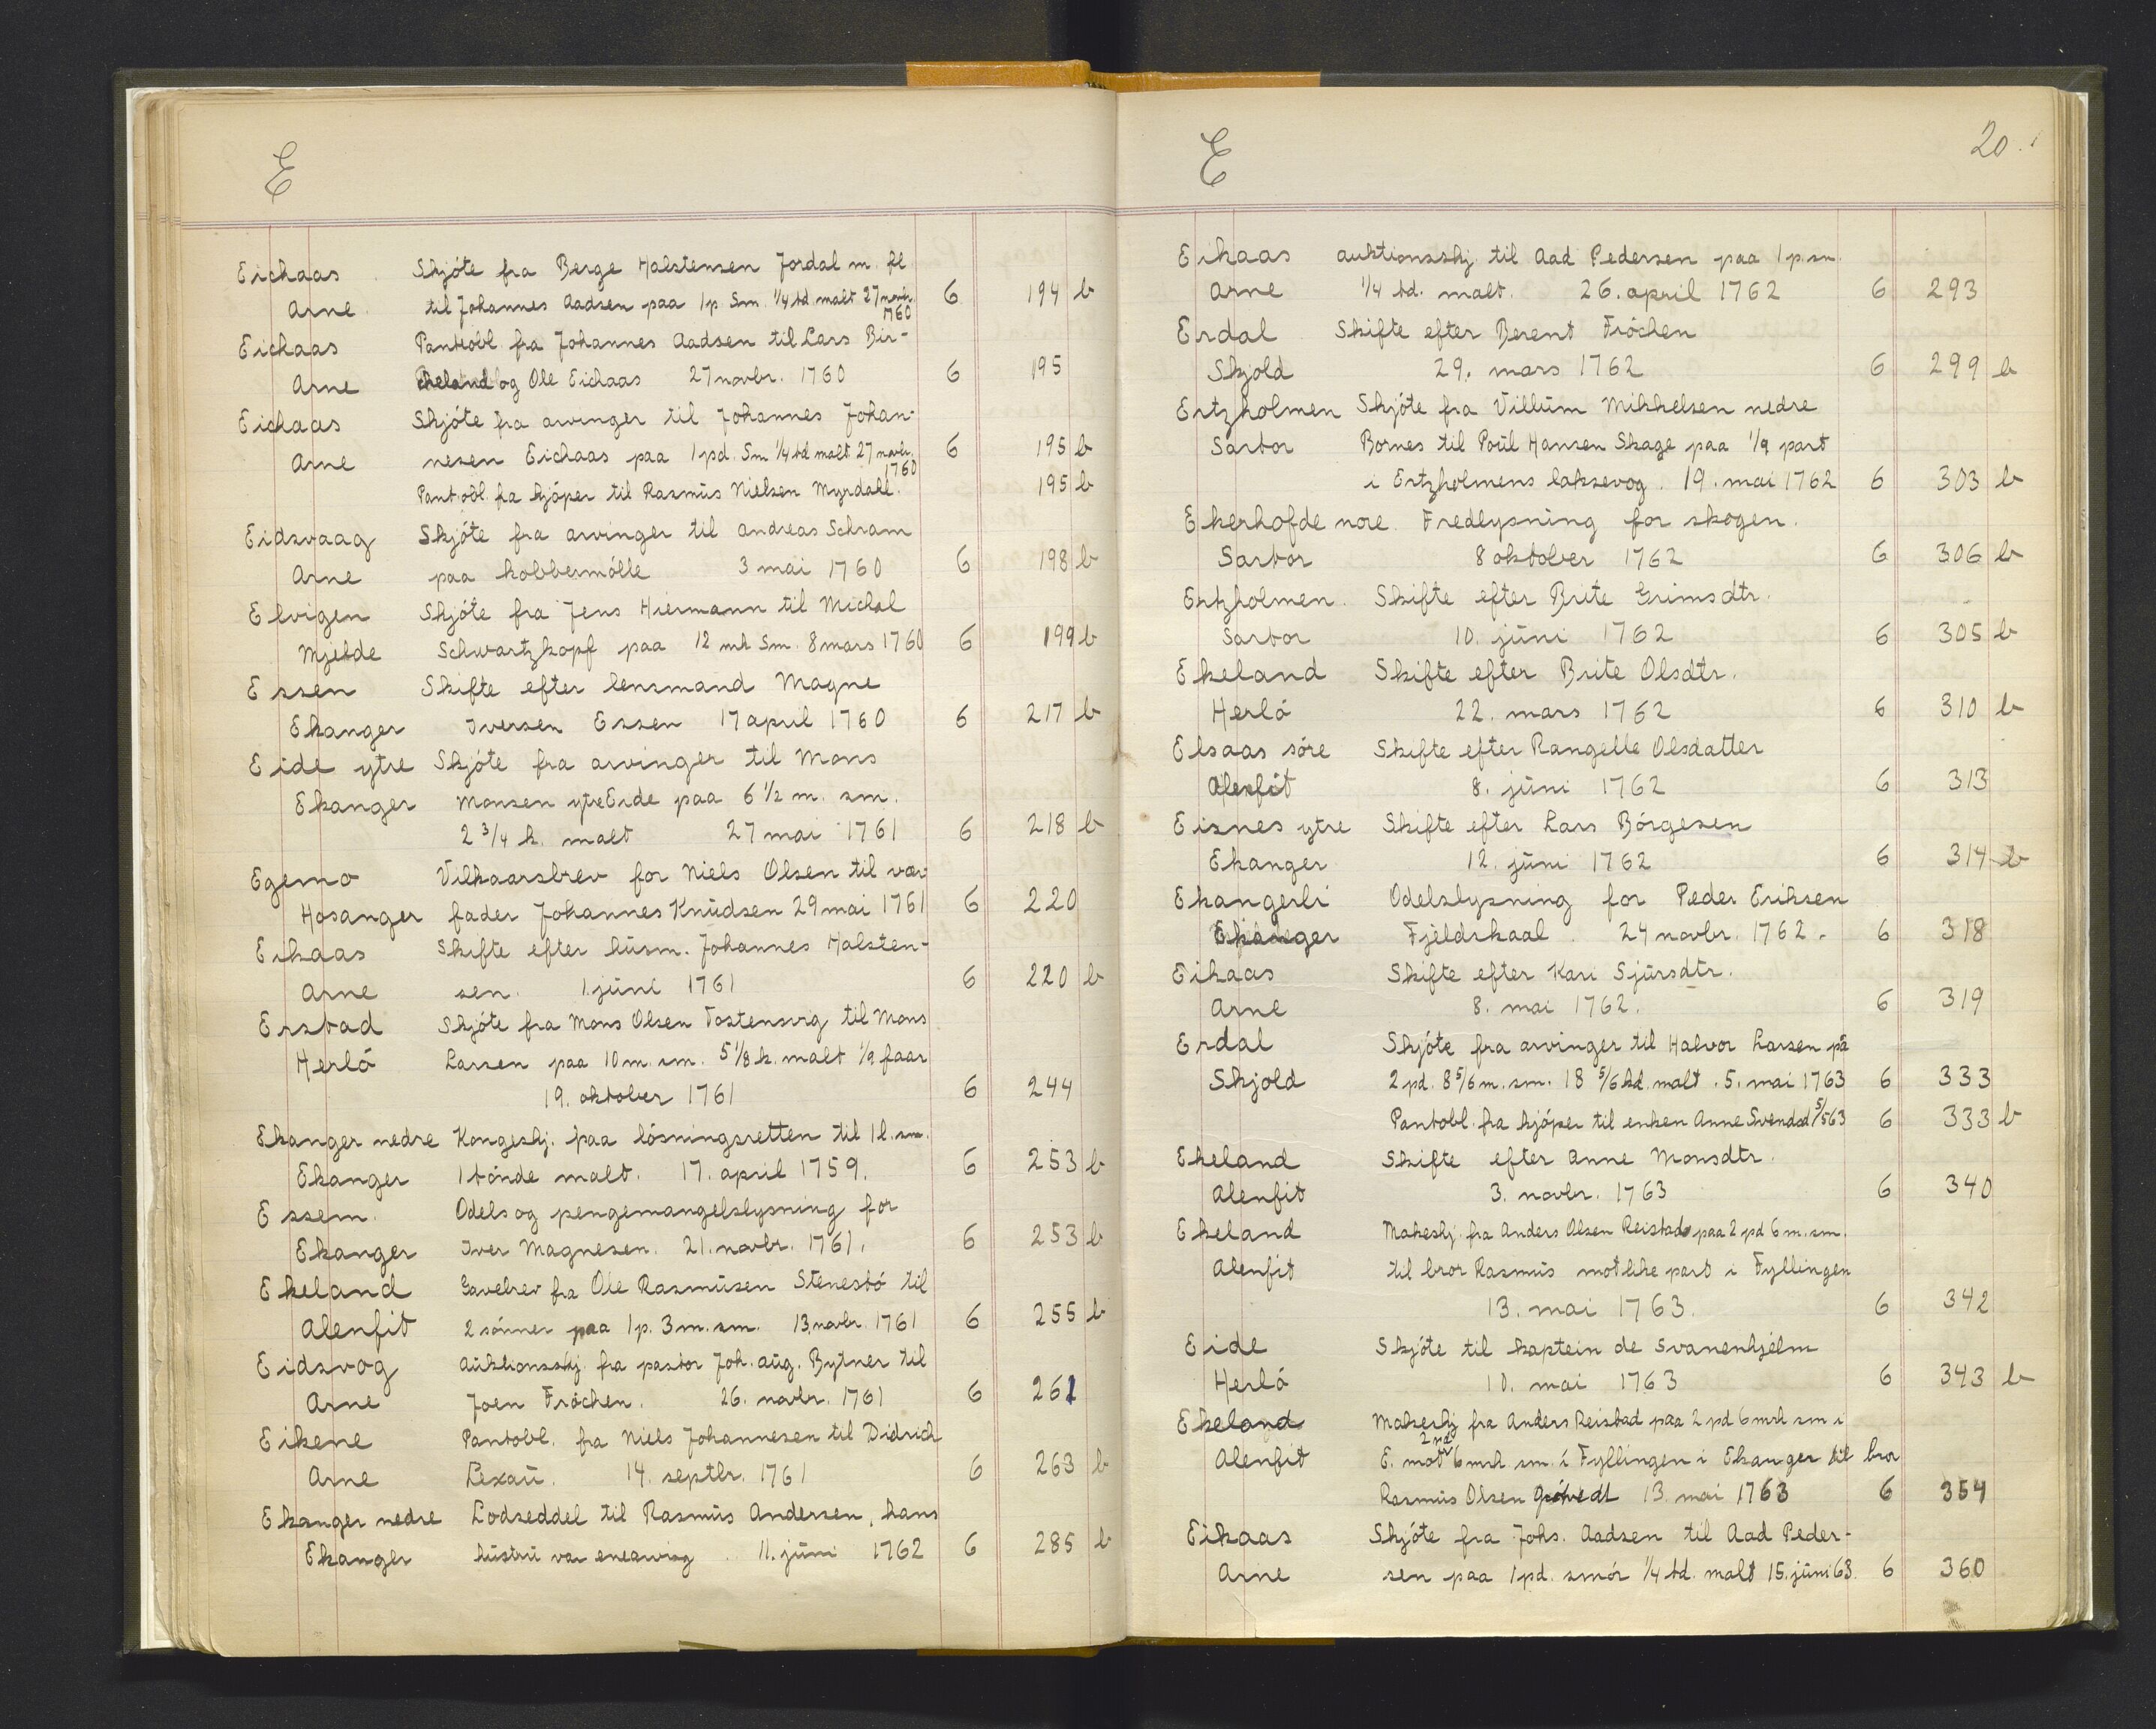 E
Eichaas Skjóte fra Berge Halstensen Jordal m. fl
Arne til Johannes Aadsen paa 1p Sm. 1/4 td. malt 27 novbr. 1760 6 194 b
Eichaas Pantobl. fra Johannes Aadsen til Lars Bir-
Arne cheland og Ole Eichaas 27 novbr. 1760 6 195
Eichaas Skjóte fra arvinger til Johannes Johan-
Arne nesen Eichaas paa 1 pd. Sm 1/4 td malt 27 novbr. 1760 6 195 b
Pant.obl. fra kjóper til Rasmus Nielsen Myrdahl. 195 b
Eidsvaag Skjóte fra arvinger til Andreas Schram
Arne paa kobbermólle 3 mai 1760 6 198 b
Elvigen Skjóte fra Jens Hiermann til Michal
Mjelde Schwartzkopf paa 12 mk Sm. 8 mars 1760 6 199 b
Essen Skifte efter lensmand Magne
Ekanger Iversen Essen 17 april 1760 6 217 b
Eide ytre Skjóte fra arvinger til Mons
Ekanger Monsen ytre Eide paa 6 1/2 m. sm.
2 3/4 k. malt 27 mai 1761 6 218 b
Egemo Vilkaarsbrev for Niels Olsen til vær
Hosanger fader Johannes Knudsen 29 mai 1761 6 220
Eikaas Skifte efter husm. Johannes Halsten-
Arne sen. 1. juni 1761 6 220 b
Eistad Skjóte fra Mons Olsen Tostensvig til Mons
Herló Larsen paa 10 m. sm. 5 1/8 k. malt 1/9 faar
19. oktober 1761 6 244
Ekanger nedre Kongeskj. paa lósningsretten til 1 l. sm.
Ekanger 1 tónde malt. 17. april 1759. 6 253 b
Essem. Odels og pengemangelslysning for
Ekanger Iver Magnesen. 21. novbr. 1761. 6 253 b
Ekeland Gavebrev fra Ole Rasmusen Stenestó til
Alenfit 2 sónner paa 1p. 3 m. sm. 13. novbr. 1761 6 255 b
Eidsvog Auktionsskj. fra pastor Joh. Aug. Bytner til
Arne Joen Fróchen. 26. novbr. 1761 6 261
Eikene Pantobl. fra Niels Johannesen til Didrich
Arne Lexau. 14. septbr. 1761 6 263 b
Ekanger nedre Lodseddel til Rasmus Andersen, hans
Ekanger hustru var enearving. 11. juni 1762 6 285 b
E 20.
Eikaas auktionsskj. til Aad Pedersen paa 1 p. sm.
Arne 1/4 td. malt. 26. april 1762 6 293
Erdal Skifte efter Berent Fróchen
Skjold 29. mars 1762 6 299 b
Ertzholmen Skjóte fra Villum Mikkelsen nedre
Sartor Bornes til Poul Hansen Skage paa 1/9 part
i Ertzholmens laksevog. 19. mai 1762 6 303 b
Ekerhofde nore. Fredlysning for skogen.
Sartor 8 oktober 1762 6 306 b
Ertzholmen. Skifte efter Brite Grimsdtr.
Sartor 10. juni 1762 6 305 b
Ekeland Skifte efter Brite Olsdtr.
Herló 22. mars 1762 6 310 b
Elsaas sóre Skifte efter Rangelle Olsdatter
Alenfit 8. juni 1762 6 313
Eisnes ytre Skifte efter Lars Bórgesen
Ekanger 12. juni 1762 6 314 b
Ekangerli Odelslysning for Peder Eriksen
Ekanger Fjeldskaal. 24 novbr. 1762. 6 318
Eikaas Skifte efter Kari Sjursdtr.
Arne 8. mai 1762. 6 319
Erdal Skjóte fra arvinger til Halvor Larsen på
Skjold 2 pd. 8 5/6 m. sm. 18 5/6 kd. malt. 5. mai 1763 6 333
Pantobl. fra kjóper til enken Anne Svendsd 5/5 63 6 333 b
Ekeland Skifte efter Anne Monsdtr.
Alenfit 3. novbr. 1763 6 340
Ekeland Makeskj. fra Anders Olsen Reistad paa 2 pd 6 m. sm.
Alenfit til bror Rasmus mot like part i Fyllingen
13. mai 1763. 6 342
Eide Skjóte til kaptein de Svanenhjelm
Herló 10. mai 1763 6 343 b
Ekeland Makeskj fra Anders Reistad paa 2 pd 6 mrk sm i
Alenfit E. mot 2 pd 6 mrk sm. i Fyllingen i Ekanger til bror
Rasmus Olsen 13. mai 1763 6 354
Eikaas Skjóte fra Johs. Aadsen til Aad Peder-
Arne sen paa 1 pd. smór 1/4 td. malt 15. juni 63. 6 360